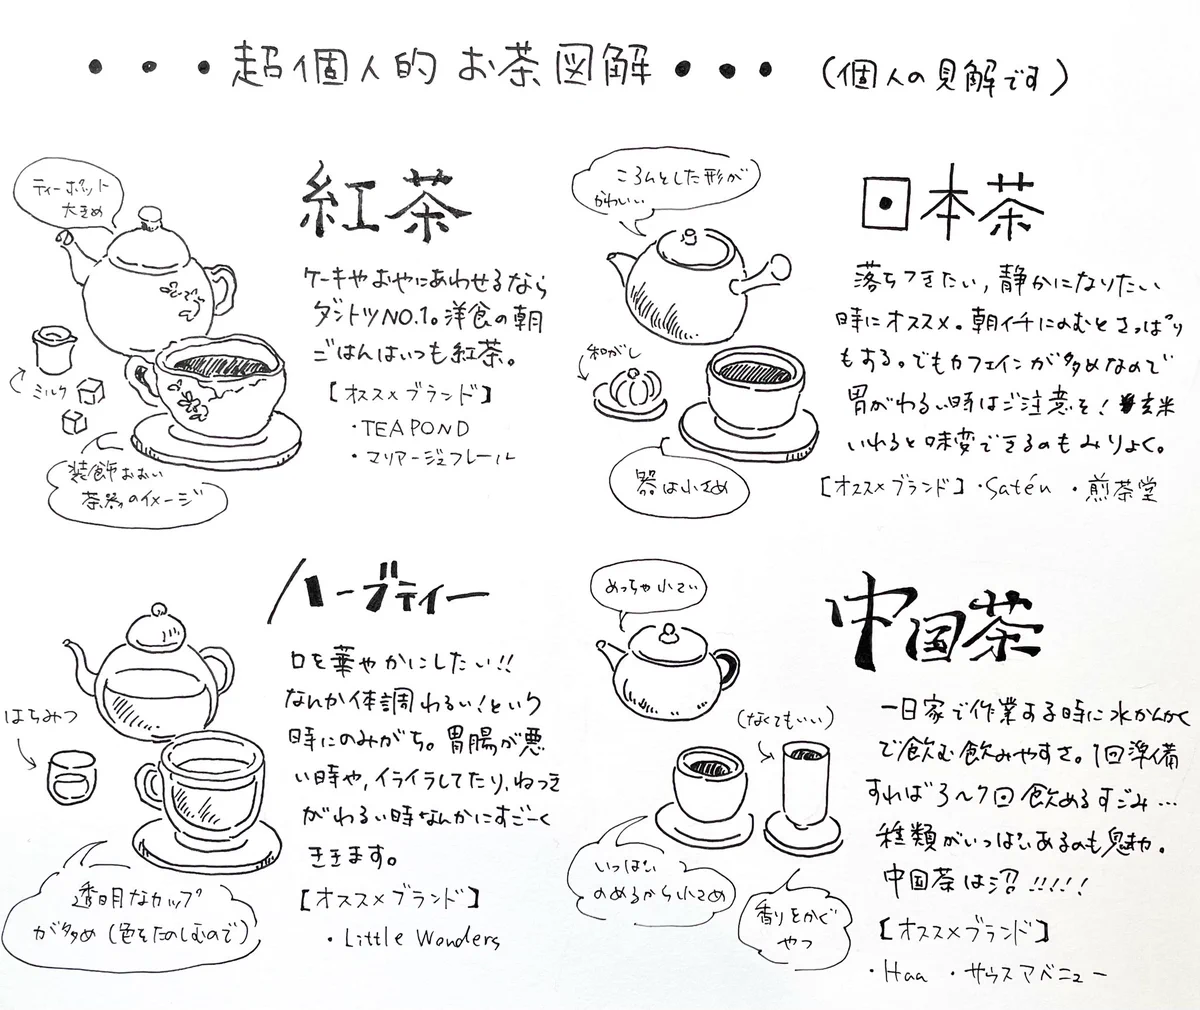 ・・・超個人的 お茶図解・・・ (個人の見解です)
紅茶
ティーポット
大きめ
ミルク
装飾おおい
茶器のイメージ
ケーキやおやにあわせるなら
ダントツNO.1。洋食の朝
ごはんはいつも紅茶。
【オススメブランド】
・TEAPOND
・マリアージュフレール
日本茶
ころんとした形が
かわいい
和がし
器は小さめ
落ちつきたい,静かになりたい
時にオススメ。朝イチにのむとさっぱり
もする。でもカフェインが多めなので
胃がわるい時はご注意を!玄米
いれると味変できるのもみりょく。
【オススメブランド】・Satén ・煎茶堂
ハーブティー
はちみつ
透明なカップ
が多め(色をたのしむので)
口を華やかにしたい!!
なんか体調わるい!という
時にのみがち。胃腸が悪
い時や,イライラしてたり,ねつき
がわるい時なんかにすごーく
ききます。
【オススメブランド】
・Little Wonders
中国茶
めっちゃ小さい
(なくてもいい)
いっぱい
のめるから小さめ
香りをかぐ
やつ
一日家で作業する時に水かんかく
で飲む飲みやすさ。1回準備
すれば3〜7回飲めるすごみ…
種類がいっぱいあるのも魅力。
中国茶は沼!!!!!
【オススメブランド】
・Haa ・サウスアベニュー